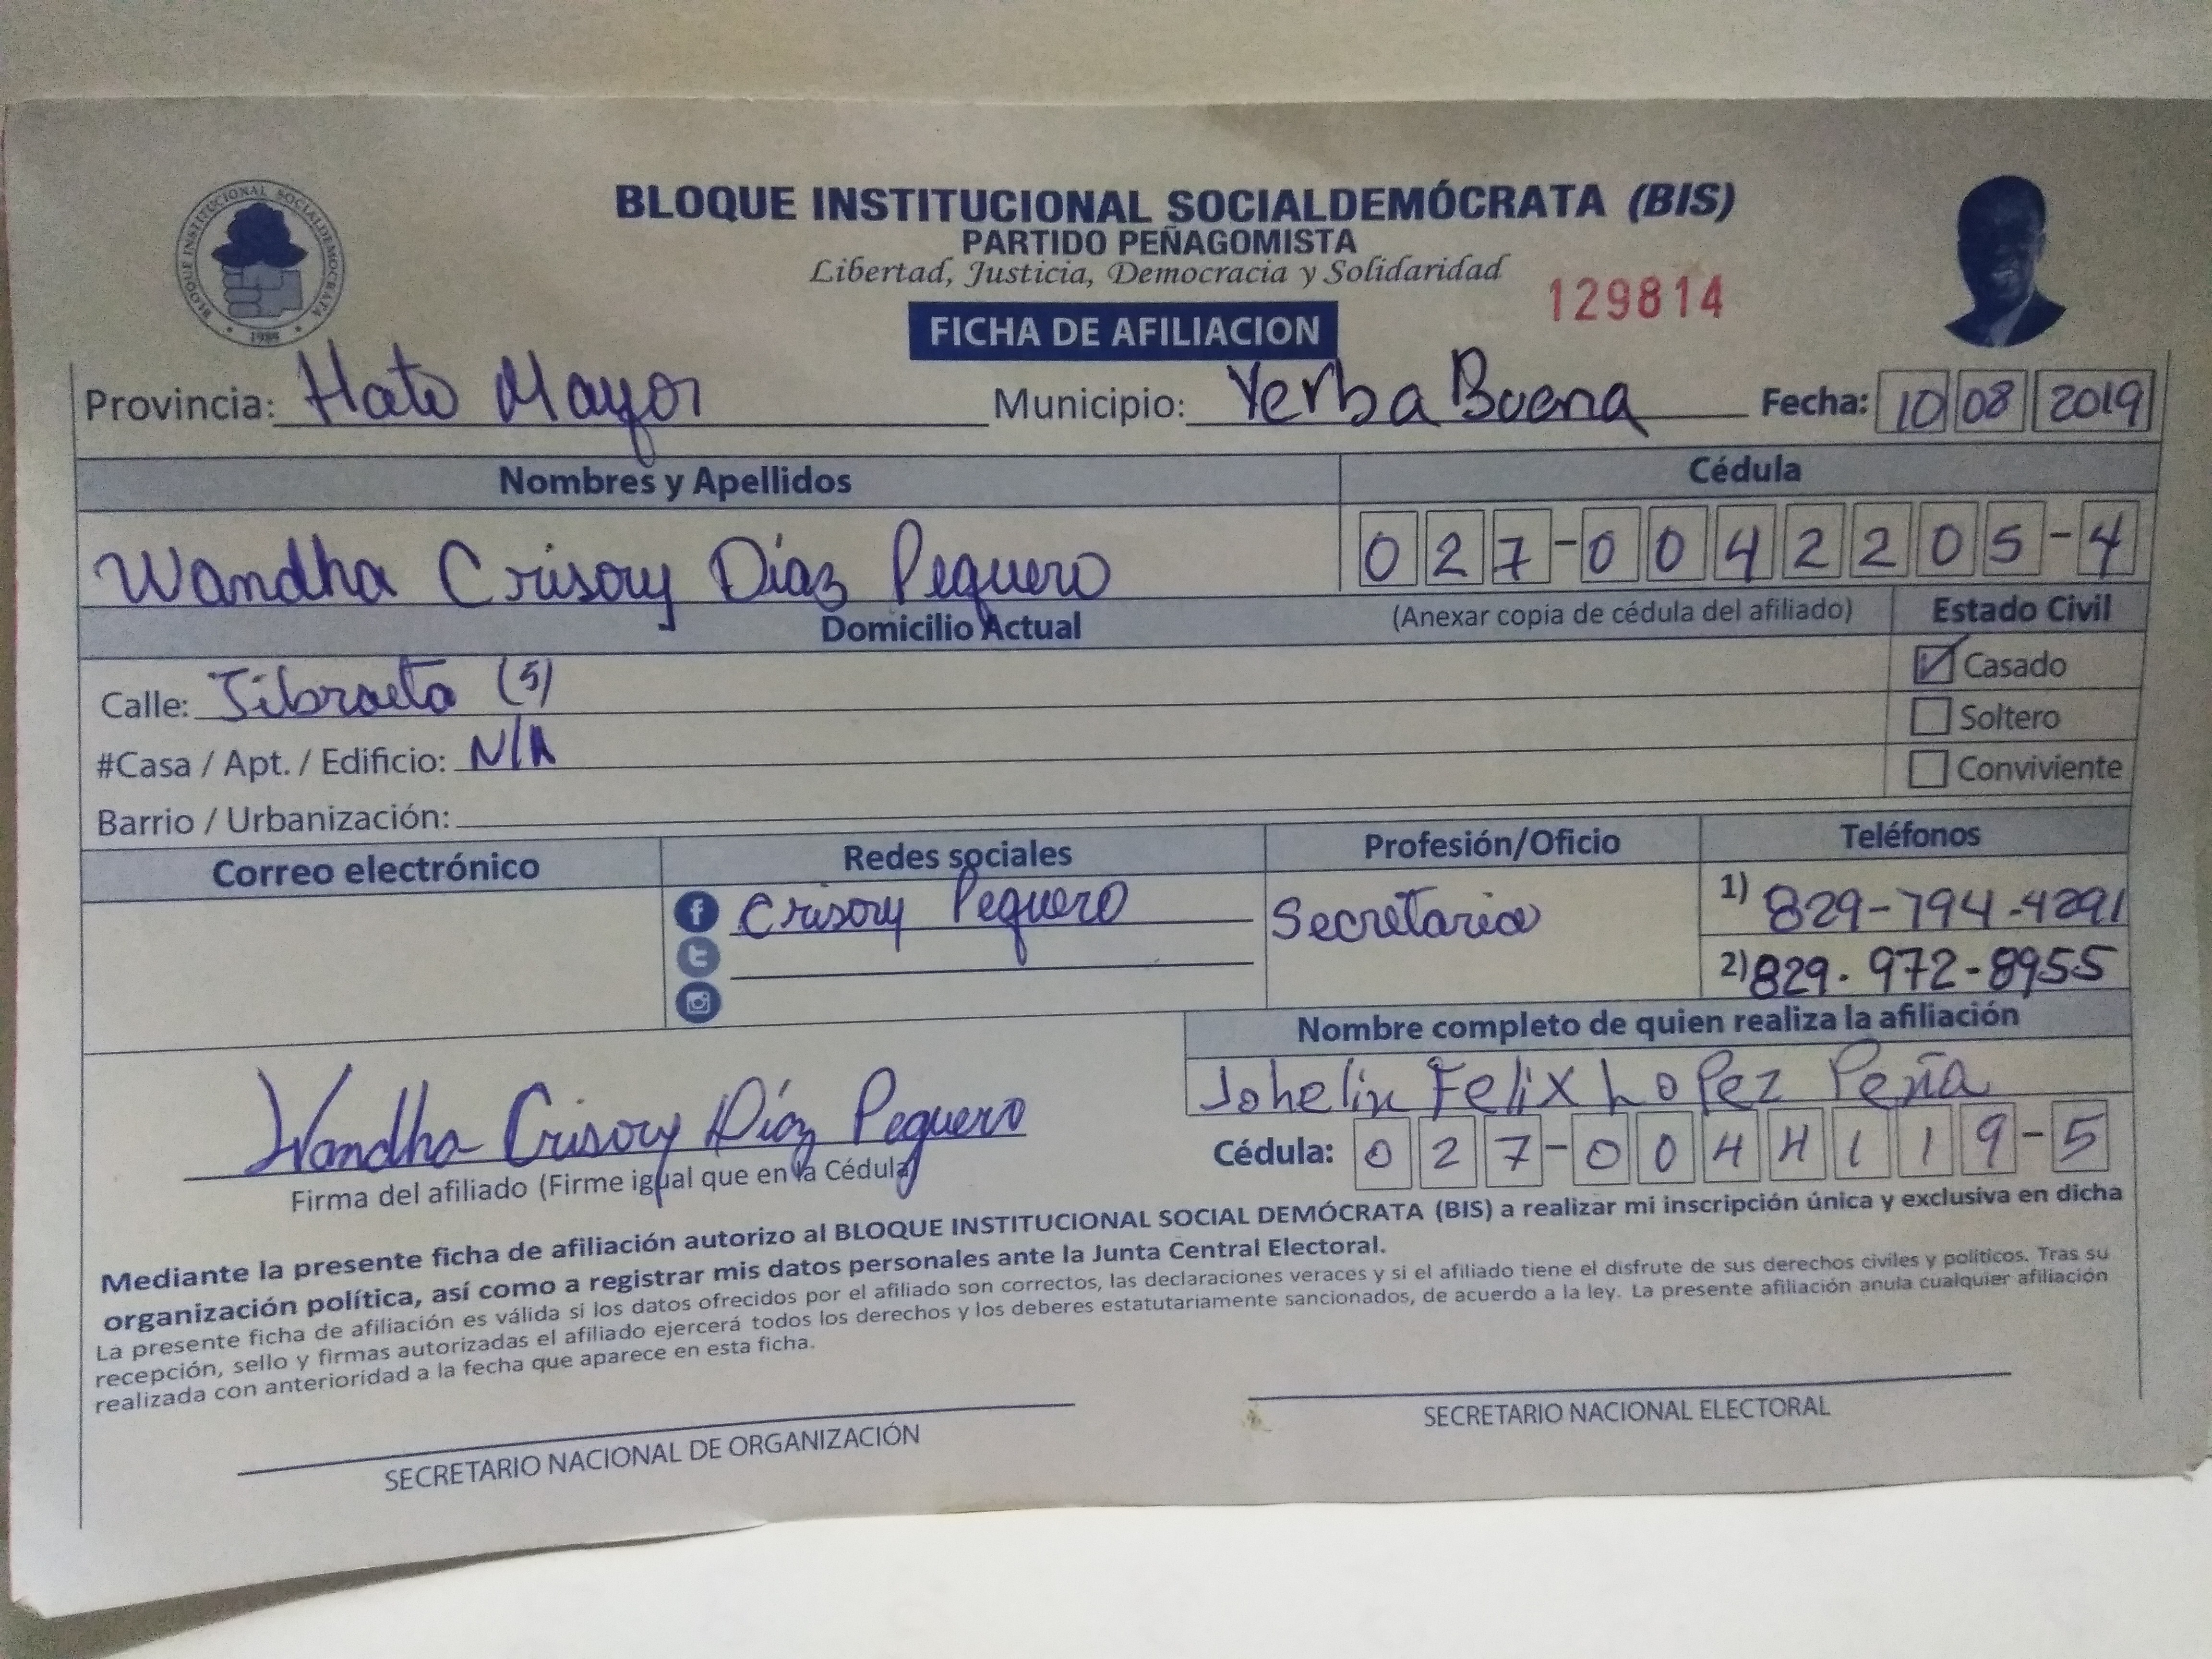 BLOQUE INSTITUCIONAL SOCIALDEMOCRATA
1989
BLOQUE INSTITUCIONAL SOCIALDEMÓCRATA (BIS)
PARTIDO PEÑAGOMISTA
Libertad, Justicia, Democracia y Solidaridad
129814
FICHA DE AFILIACION
Provincia: Hato Mayor Municipio: Yerba Buena Fecha: 10 08 2019
Nombres y Apellidos Cédula
Wandha Crisory Díaz Peguero 027-0042205-4
Domicilio Actual (Anexar copia de cédula del afiliado) Estado Civil
Calle: (5) Casado
Soltero
#Casa / Apt. / Edificio: N/A
Conviviente
Barrio / Urbanización:
Correo electrónico Redes sociales Profesión/Oficio Teléfonos
Crisory Peguero Secretaria 1) 829-794-4291
2) 829-972-8955
Nombre completo de quien realiza la afiliación
Johelin Felix Lopez Peña
Wandha Crisory Díaz Peguero
Cédula: 027-0044119-5
Firma del afiliado (Firme igual que en la Cédula)
Mediante la presente ficha de afiliación autorizo al BLOQUE INSTITUCIONAL SOCIAL DEMÓCRATA (BIS) a realizar mi inscripción única y exclusiva en dicha
organización política, así como a registrar mis datos personales ante la Junta Central Electoral.
La presente ficha de afiliación es válida si los datos ofrecidos por el afiliado son correctos, las declaraciones veraces y si el afiliado tiene el disfrute de sus derechos civiles y políticos. Tras su
recepción, sello y firmas autorizadas el afiliado ejercerá todos los derechos y los deberes estatutariamente sancionados, de acuerdo a la ley. La presente afiliación anula cualquier afiliación
realizada con anterioridad a la fecha que aparece en esta ficha.
SECRETARIO NACIONAL DE ORGANIZACIÓN SECRETARIO NACIONAL ELECTORAL